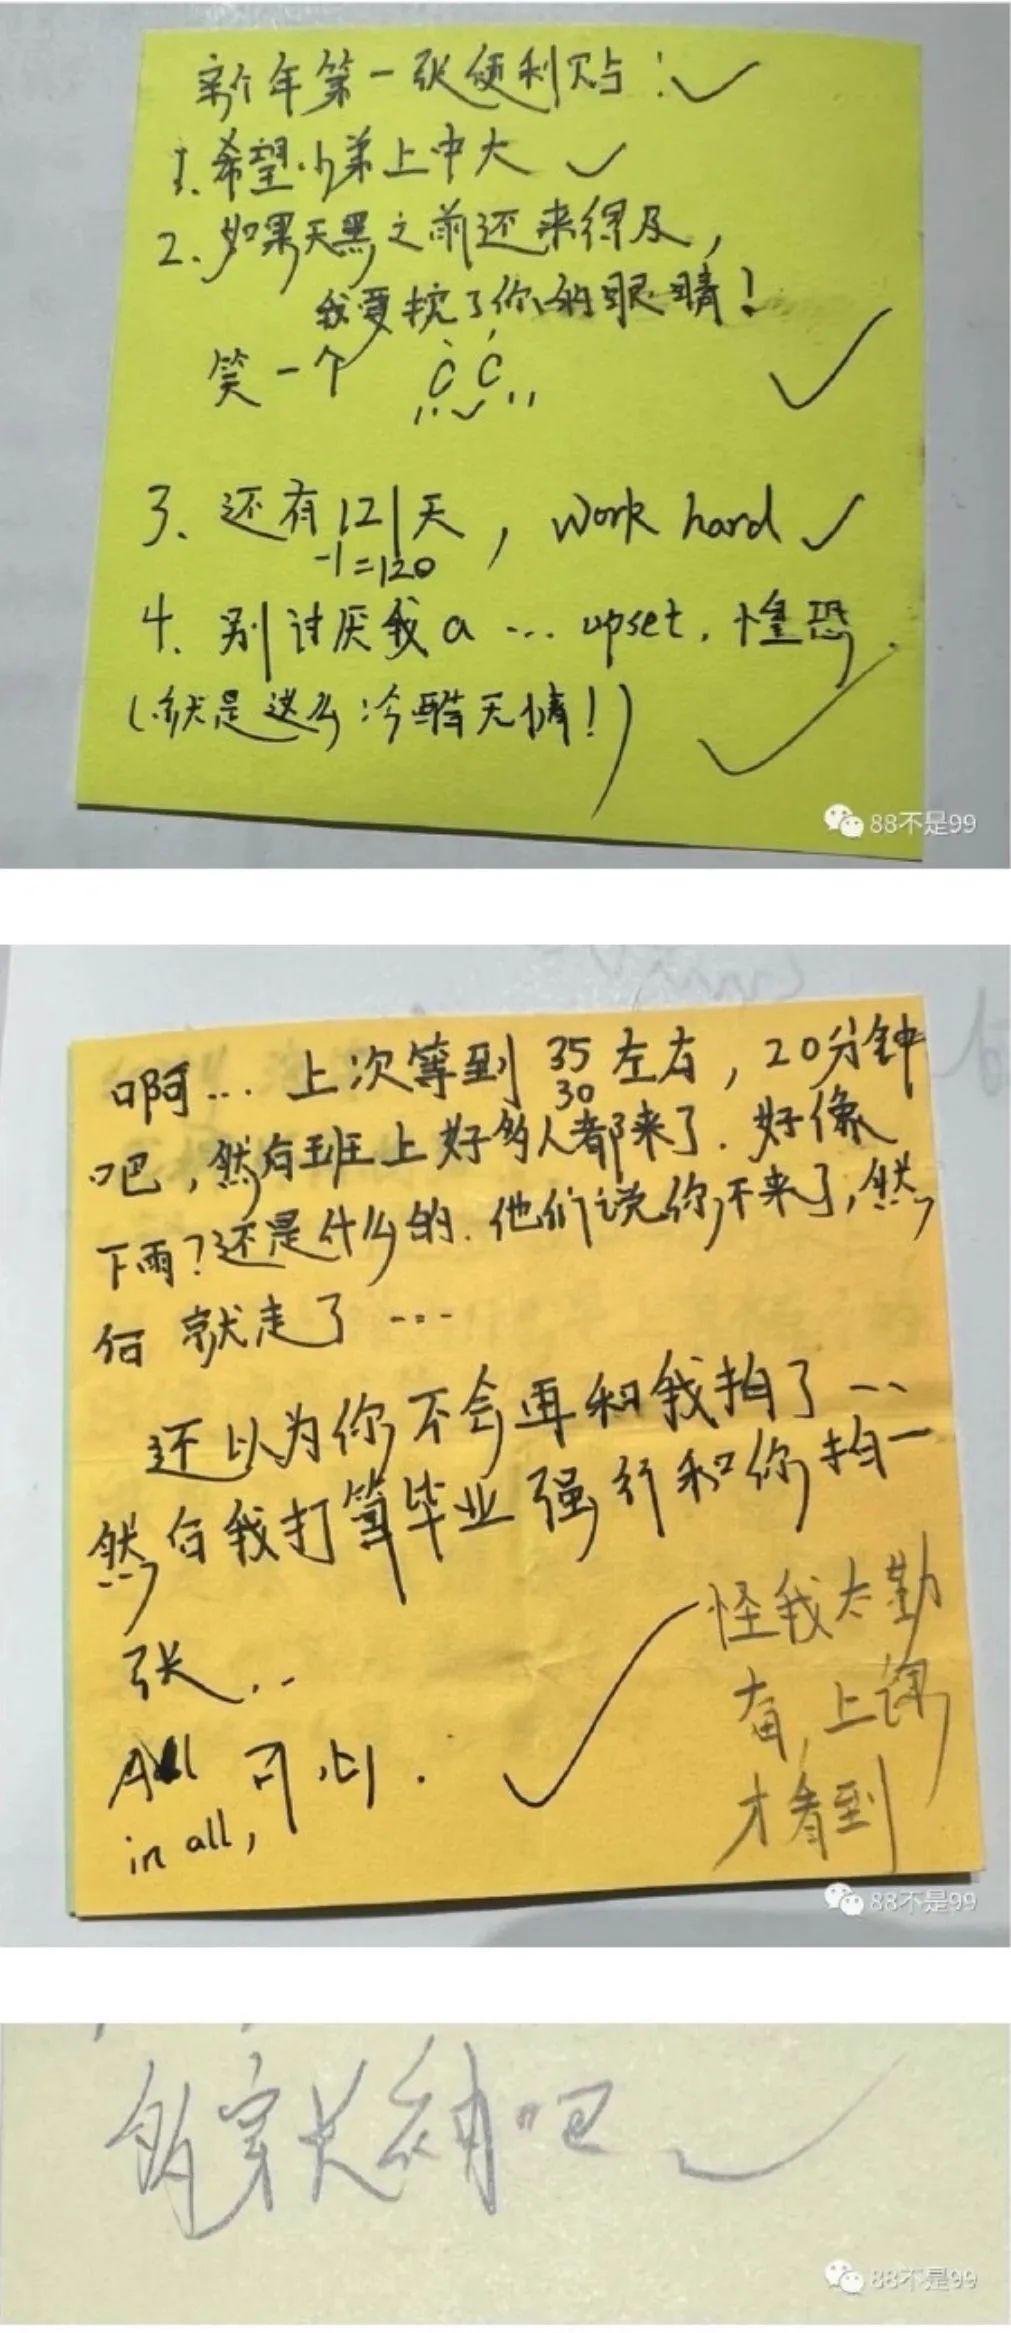 新年第一张便利贴！
1.希望小弟上中大
2.如果天黑之前还来得及，
我要挖了你的眼睛！
笑一个
3.还有121天，work hard
-1=120
4.别讨厌我a…upset.惶恐.
(就是这么冷酷无情！)
88不是99
啊…上次等到35左右，20分钟
30
吧，然后班上好多人都来了.好像
下雨？还是什么的.他们说你不来了，然
后就走了…
还以为你不会再和我拍了…
然后我打算毕业强行和你拍一
张…
怪我太勤
奋，上课
才看到
All 可以.
in all,
88不是99
穿长袖吧
88不是99